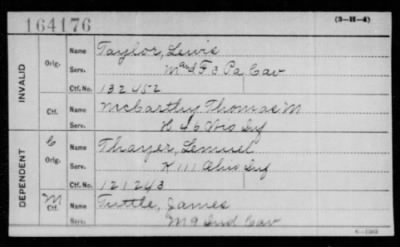 164176
(3-H-4)
INVALID
Orig.
Name Taylor, Lewis
Serv. M and F 3 Pa Cav
Ctf. No. 132452
Ctf.
Name McCarthy Thomas M
Serv. H 46 Wis Inf
DEPENDENT
C
Orig.
Name Thayer, Lemuel
Serv. K 111 Ohio Inf
Ctf. No. 121243
M
Ctf.
Name Tuttle, James
Serv. M 9 Ind Cav